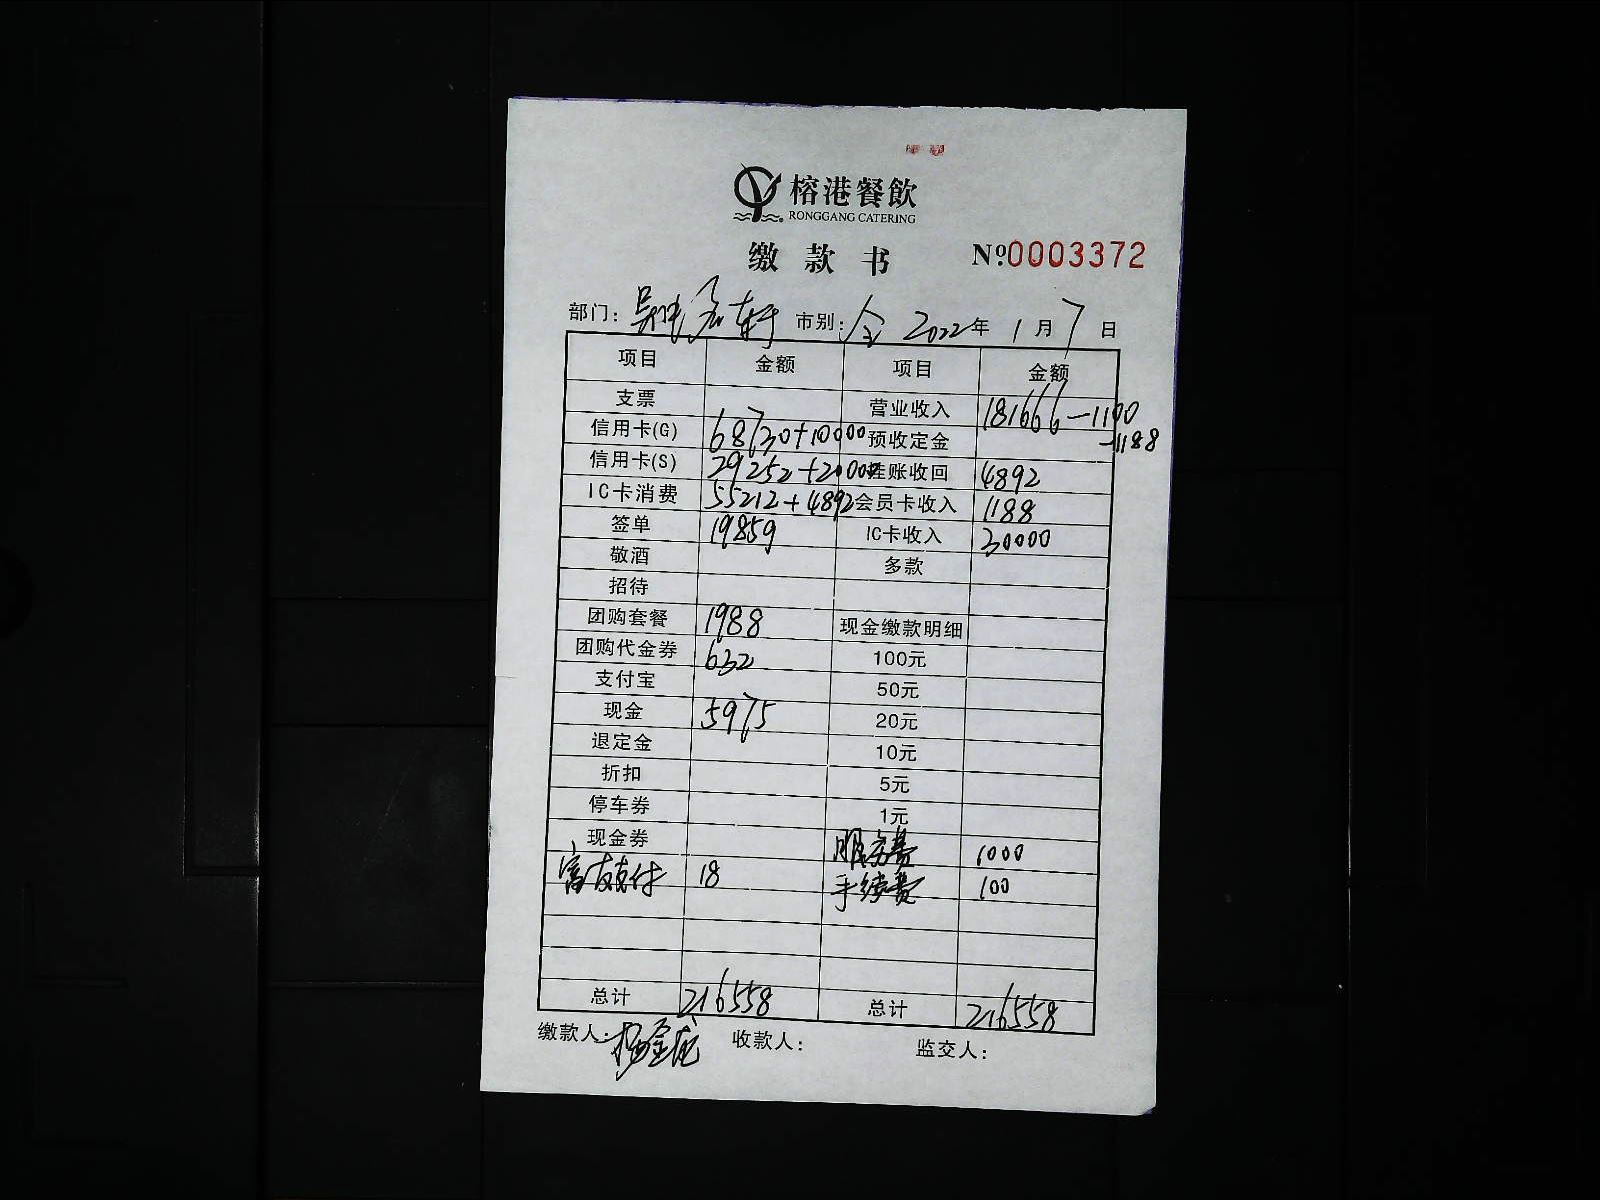 榕港餐飲
RONGGANG CATERING
缴款书 №0003372
部门: 轩 市别: 全 2022年 1月 7日
项目 金额 项目 金额
支票 营业收入 181666-1100
信用卡(G) 68730+10000 预收定金 -1188
信用卡(S) 29252+20000 挂账收回 4892
IC卡消费 55212+4892 会员卡收入 1188
签单 19859 IC卡收入 30000
敬酒 多款
招待
团购套餐 1988 现金缴款明细
团购代金券 632 100元
支付宝 50元
现金 5975 20元
退定金 10元
折扣 5元
停车券 1元
现金券 服务费 1000
富友支付 18 手续费 100
总计 216558 总计 216558
缴款人: 杨金 收款人: 监交人: